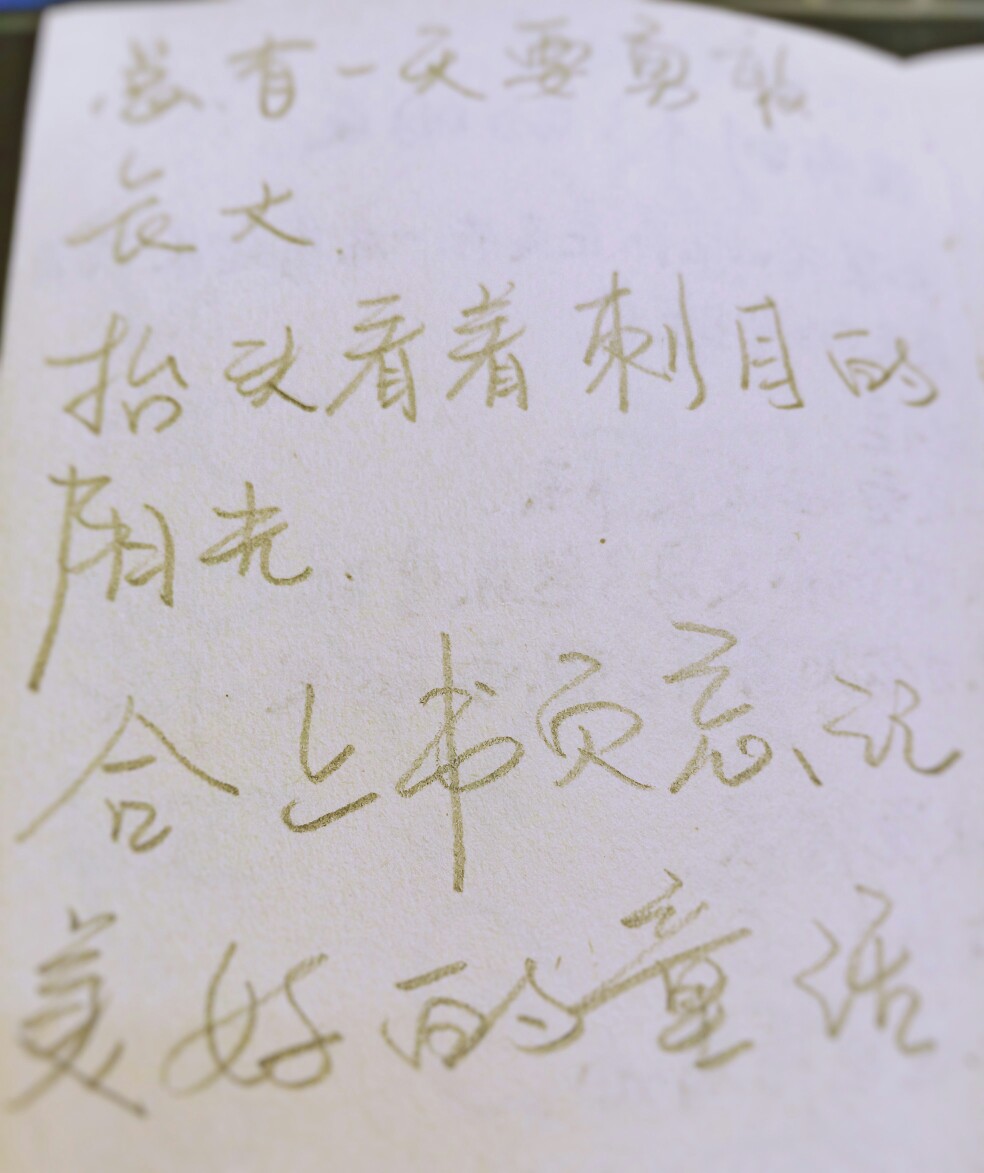 总有一天要勇敢
长大.
抬头看着刺目的
阳光.
合上书页忘记
美好的童话